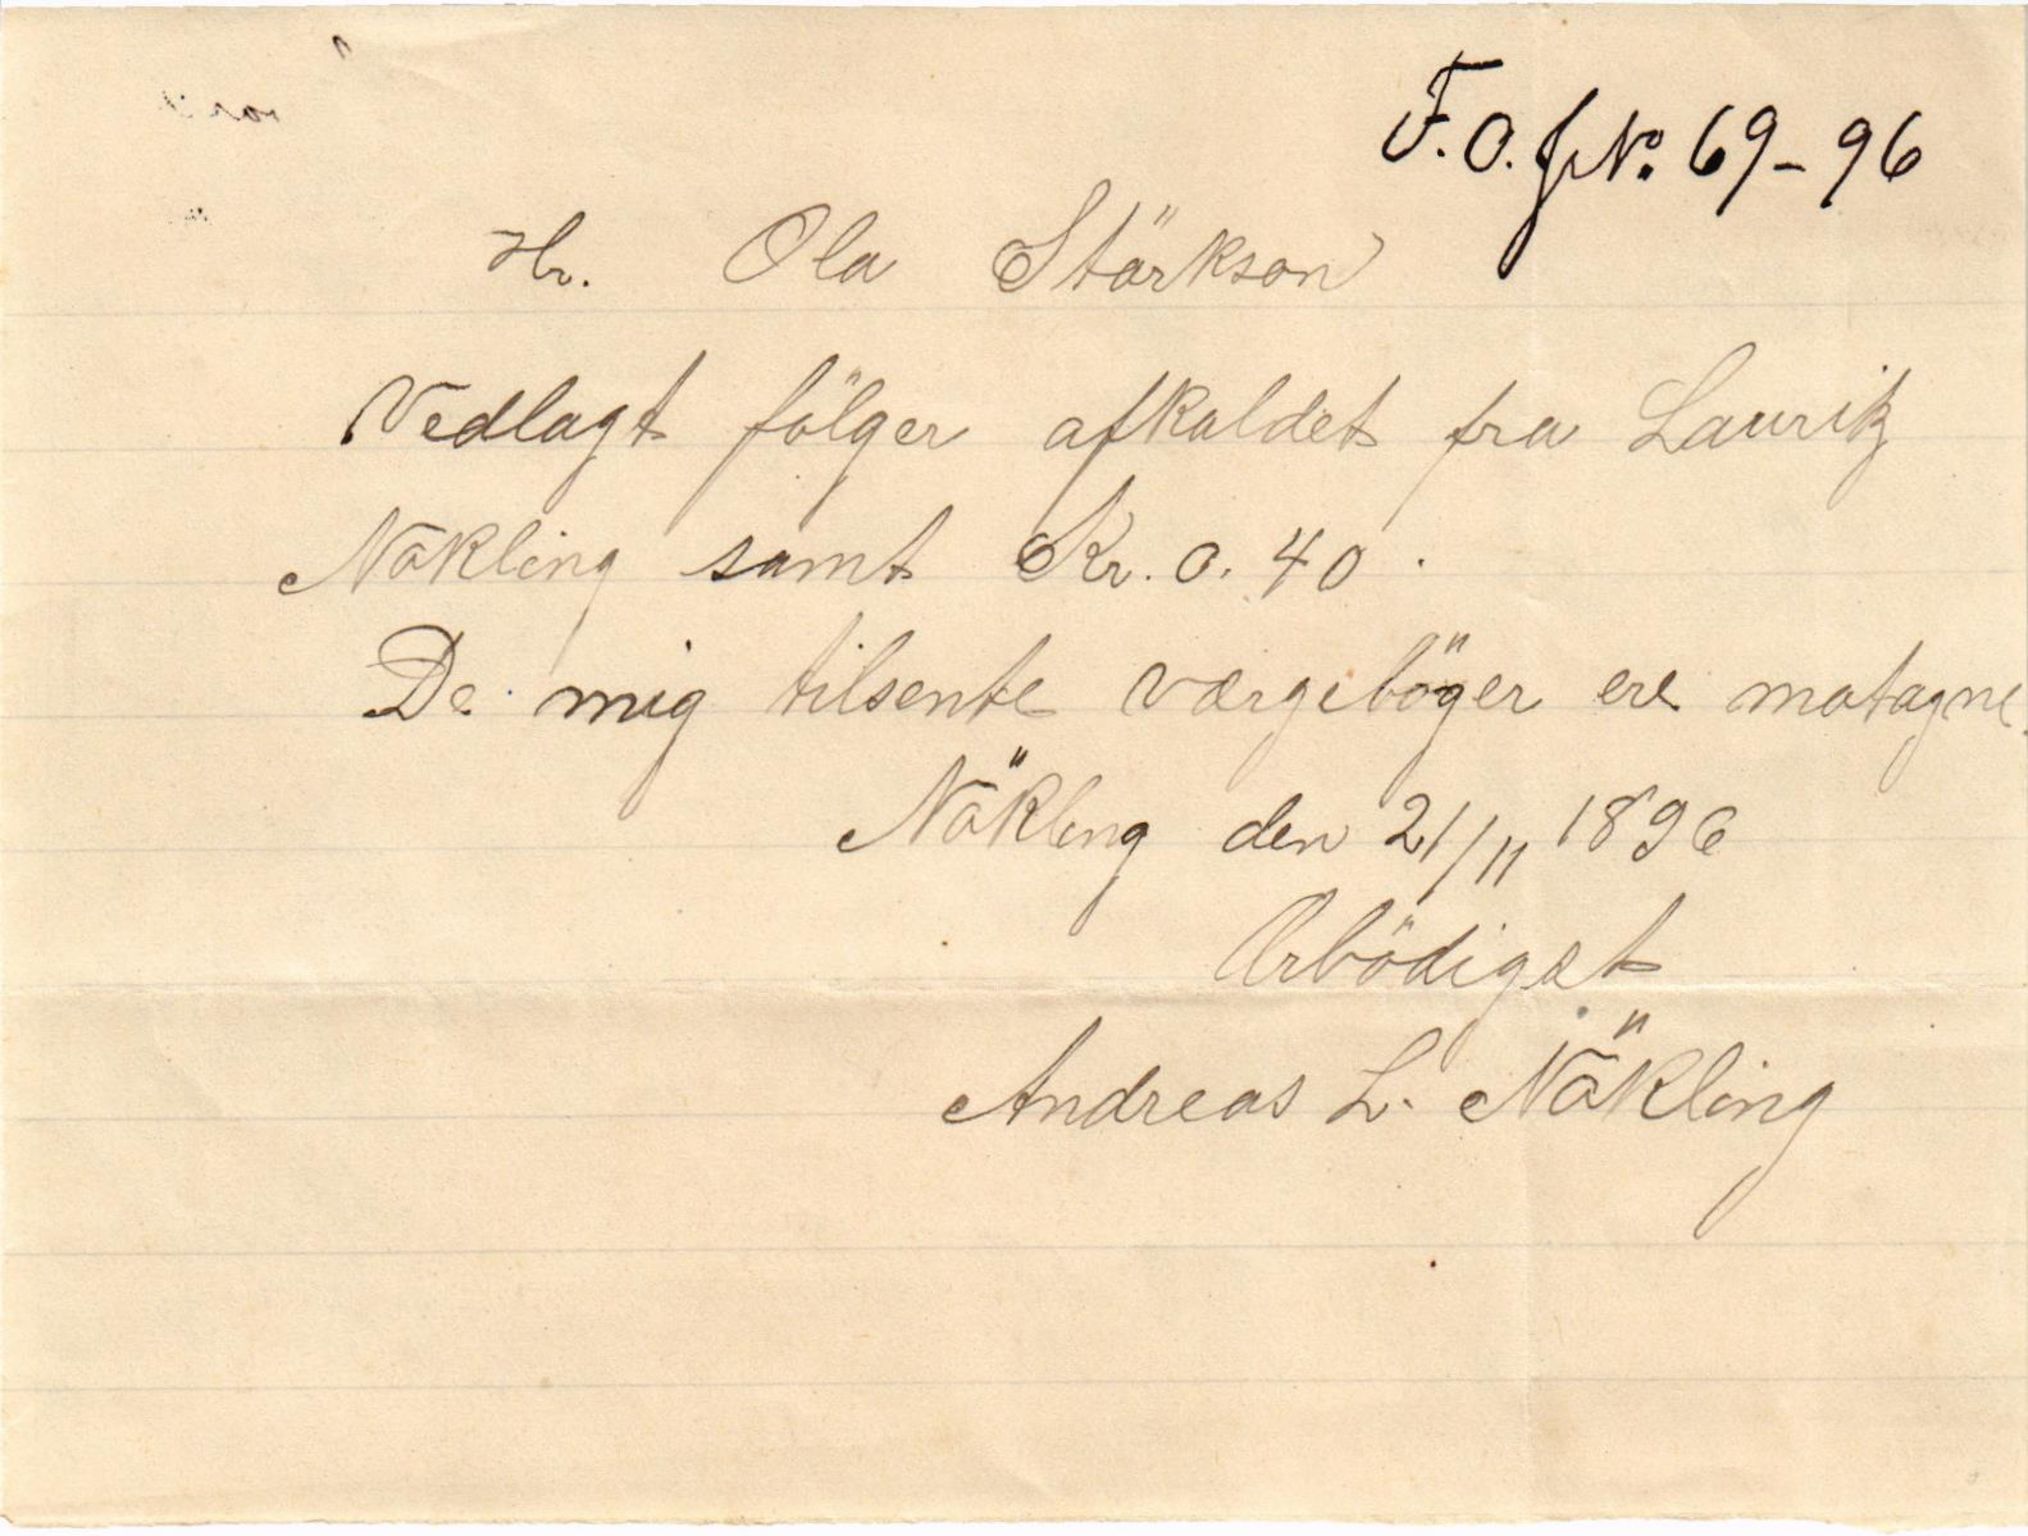 F. O. J. No. 69-96
Hr. Ola Störkson
Vedlagt fölger afkaldet fra Lauritz
Nökling samt Kr. 0. 40.
De mig tilsente værgeböger ere motagne.
Nökling den 21/11 1896
Ærbödigst
Andreas L. Nökling